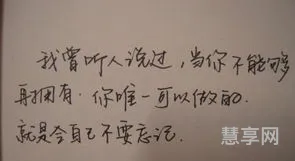 我曾听人说过，当你不能够
再拥有.你唯一可以做的.
就是令自己不要忘记.
慧享网